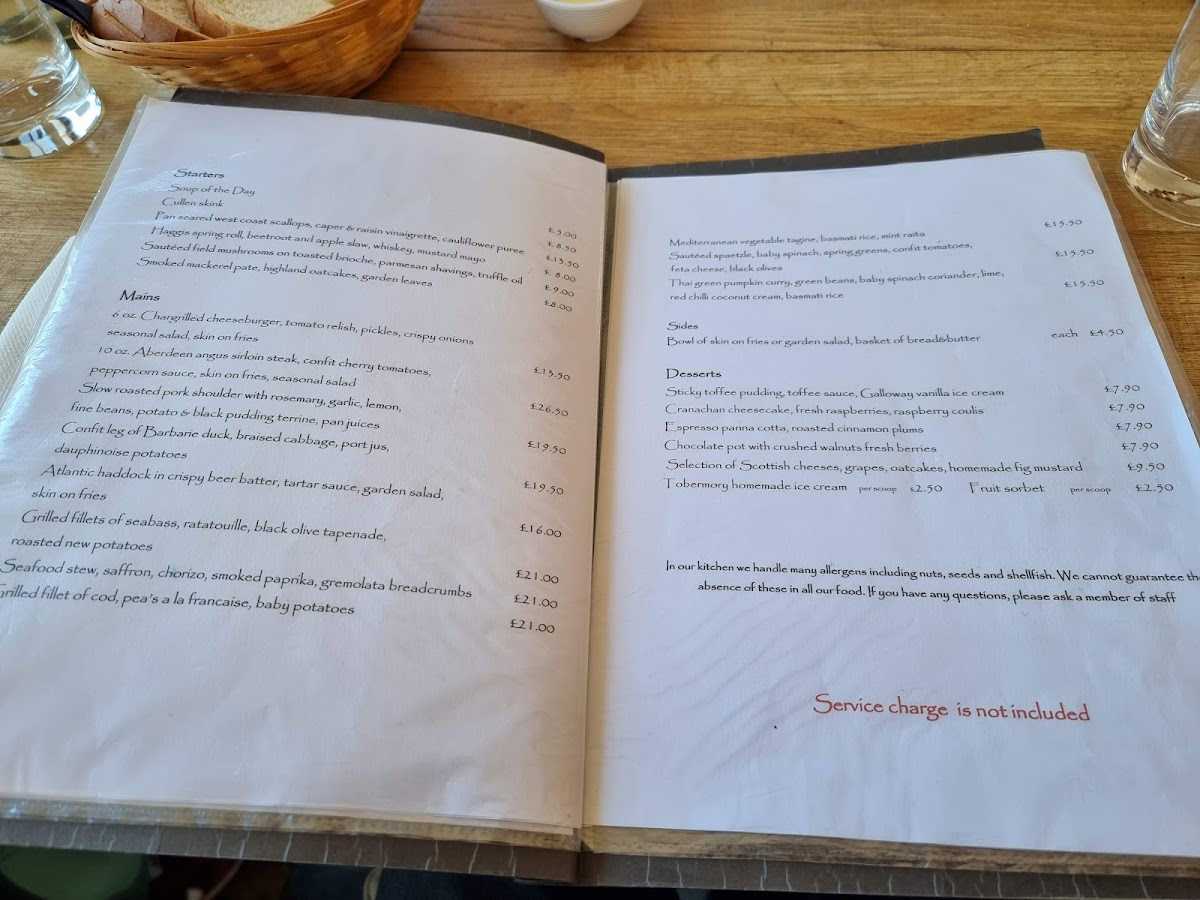 Starters
Soup of the Day £5.00
Cullen skink £8.50
Pan seared west coast scallops, caper & raisin vinaigrette, cauliflower puree £13.50
Haggis spring roll, beetroot and apple slaw, whiskey, mustard mayo £8.00
Sautéed field mushrooms on toasted brioche, parmesan shavings, truffle oil £9.00
Smoked mackerel pate, highland oatcakes, garden leaves £8.00
Mains
6 oz. Chargrilled cheeseburger, tomato relish, pickles, crispy onions
seasonal salad, skin on fries £13.50
10 oz. Aberdeen angus sirloin steak, confit cherry tomatoes,
peppercorn sauce, skin on fries, seasonal salad £26.50
Slow roasted pork shoulder with rosemary, garlic, lemon,
fine beans, potato & black pudding terrine, pan juices £19.50
Confit leg of Barbarie duck, braised cabbage, port jus,
dauphinoise potatoes £19.50
Atlantic haddock in crispy beer batter, tartar sauce, garden salad,
skin on fries £16.00
Grilled fillets of seabass, ratatouille, black olive tapenade,
roasted new potatoes £21.00
Seafood stew, saffron, chorizo, smoked paprika, gremolata breadcrumbs £21.00
Grilled fillet of cod, pea's a la francaise, baby potatoes £21.00
Mediterranean vegetable tagine, basmati rice, mint raita £15.50
Sautéed spaetzle, baby spinach, spring greens, confit tomatoes,
feta cheese, black olives £15.50
Thai green pumpkin curry, green beans, baby spinach coriander, lime,
red chilli coconut cream, basmati rice £15.50
Sides
Bowl of skin on fries or garden salad, basket of bread&butter each £4.50
Desserts
Sticky toffee pudding, toffee sauce, Galloway vanilla ice cream £7.90
Cranachan cheesecake, fresh raspberries, raspberry coulis £7.90
Espresso panna cotta, roasted cinnamon plums £7.90
Chocolate pot with crushed walnuts fresh berries £7.90
Selection of Scottish cheeses, grapes, oatcakes, homemade fig mustard £9.50
Tobermory homemade ice cream per scoop £2.50 Fruit sorbet per scoop £2.50
In our kitchen we handle many allergens including nuts, seeds and shellfish. We cannot guarantee the
absence of these in all our food. If you have any questions, please ask a member of staff
Service charge is not included